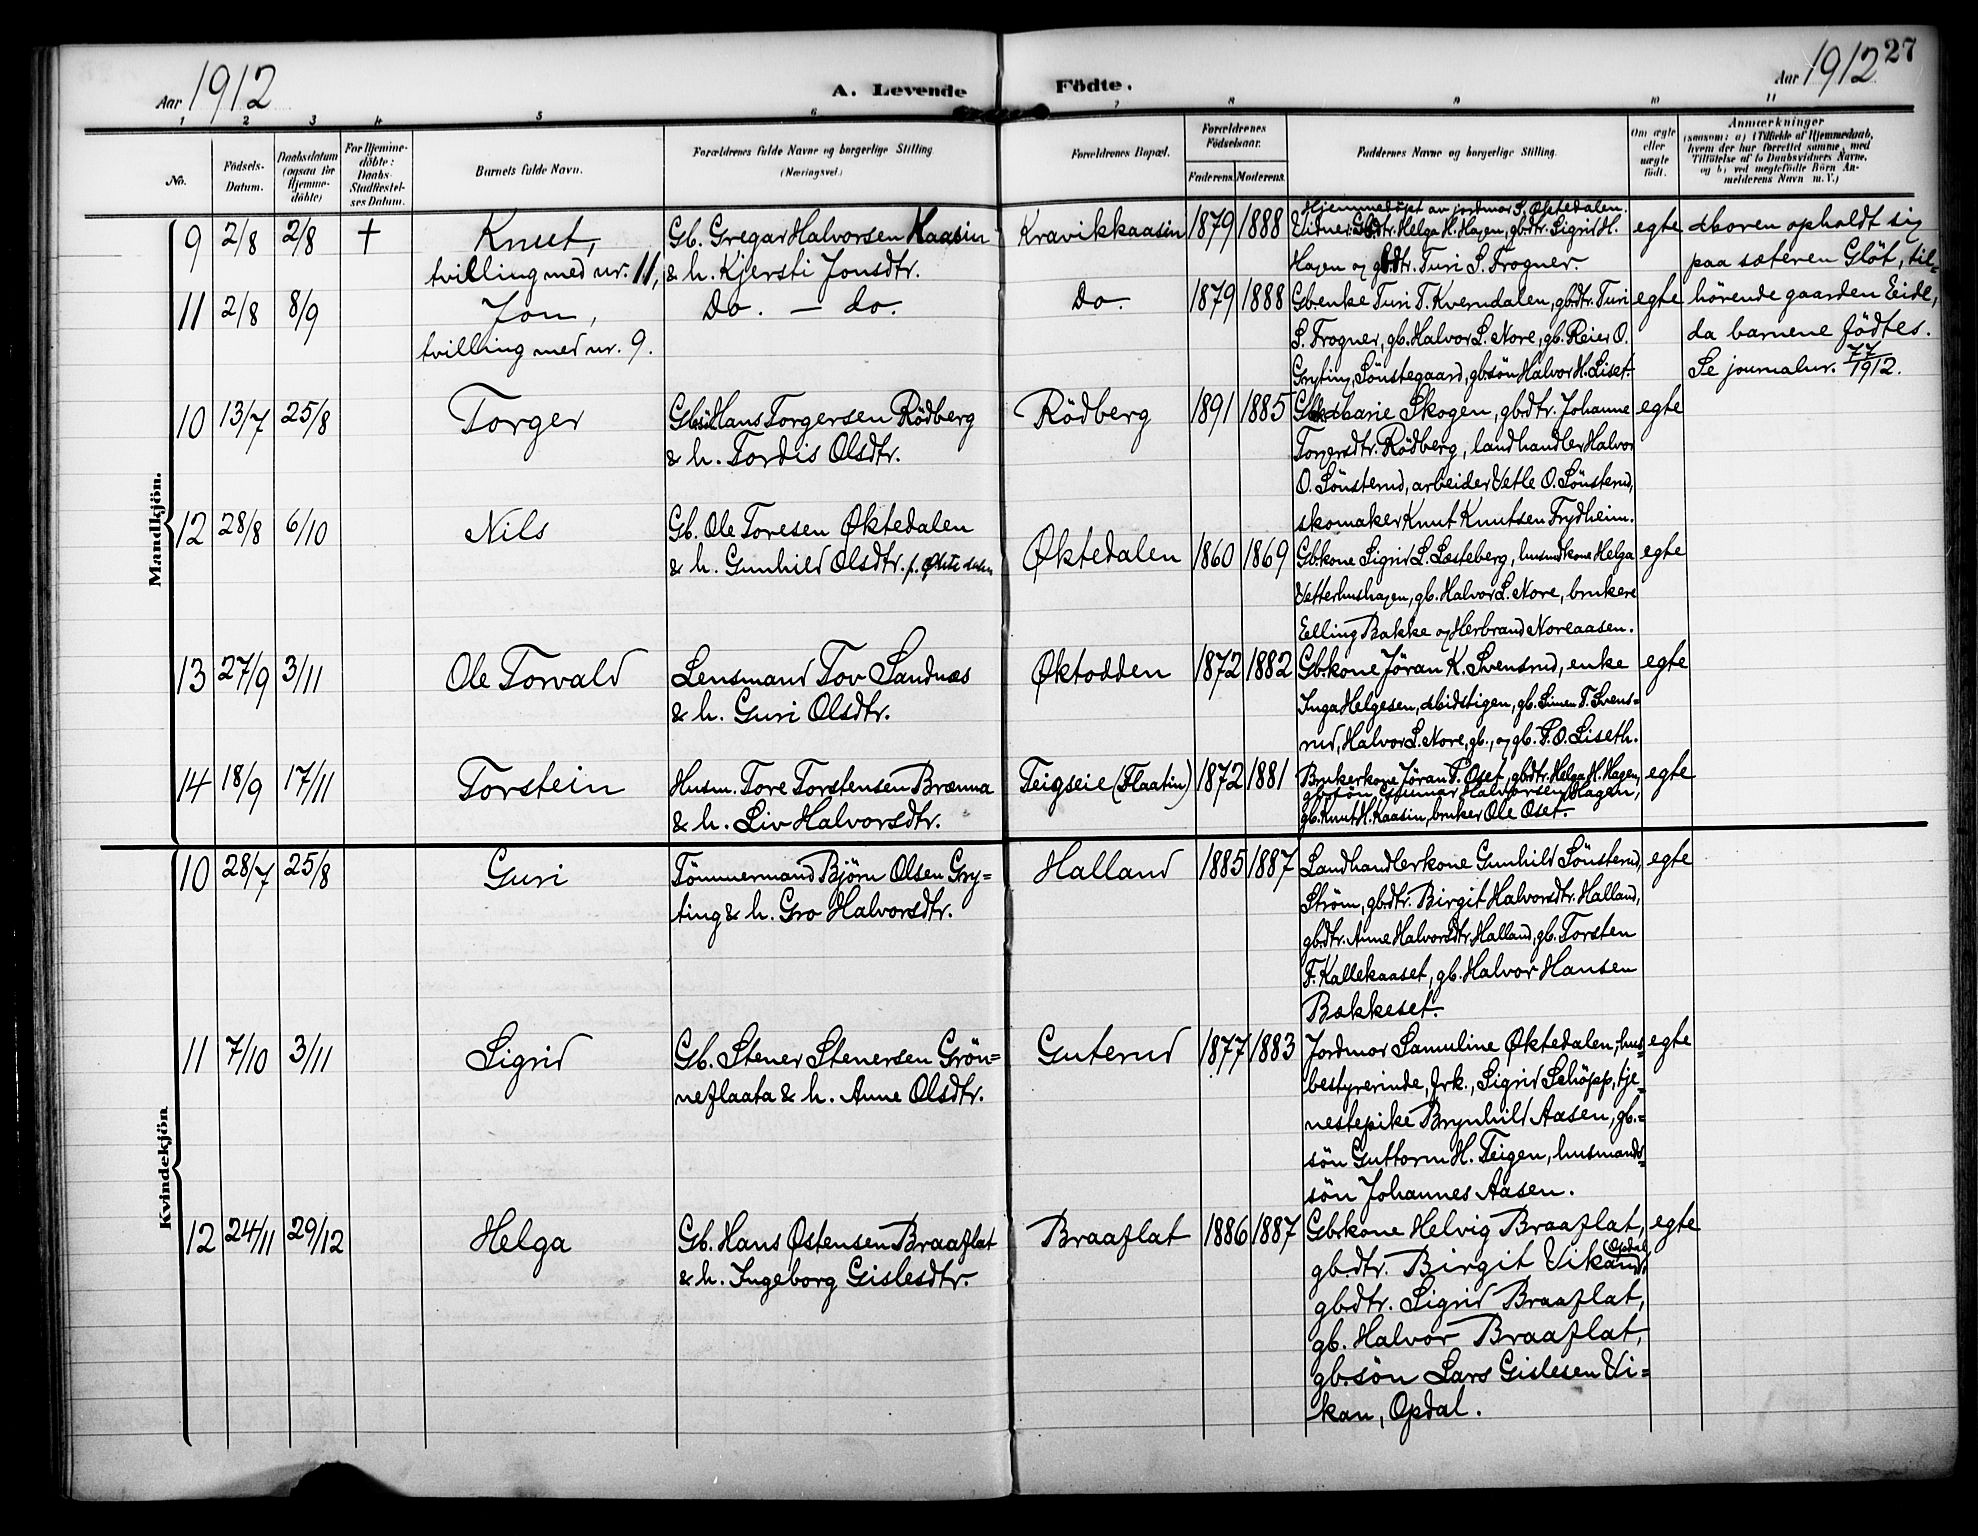 Aar 1912
A. Levende Födte.
Aar 1912 27
1 2 3 4 5 6 7 8 9 10 11
No.
Födsels-Datum.
Daabsdatum (ogsaa for Hjemme-döbte)
For Hjemme-döbte: Daabs-Stadfæstel-ses Datum.
Barnets fulde Navn.
Forældrenes fulde Navne og borgerlige Stilling (Næringsvei.)
Forældrenes Bopæl.
Forældrenes Födselsaar.
Faderens. Moderens.
Faddernes Navne og borgerlige Stilling.
Om ægte eller uægte födt.
Anmærkninger
(saasom: a) i Tilfælde af Hjemmedaab,
hvem der har forrettet samme, med
Tilföielse af to Daabsvidners Navne,
og b) ved uegtefödte Börn An-
melderens Navn m. V.)
Mandkjön.
9 2/8 2/8 + Knut, tvilling med nr. 11,
Gb. Gregar Halvorsen Kaasin
& h. Kjersti Jonsdtr.
Kravikkaasin 1879 1888
Hjemmedöpt av jordmor S. Øktedalen.
Vidner: Gbdtr. Helga H. Hagen, gbdtr. Sigrid H.
Hagen og gbdtr. Turi S. Frogner.
egte
Moren opholdt sig
paa sæteren Glöt, til-
hörende gaarden Eide,
da barnene födtes.
Se journalnr. 77/1912.
11 2/8 8/9 Jon, tvilling med nr. 9.
Do. — do.
Do. 1879 1888
Gbenke Turi T. Kverndalen, gbdtr. Turi
S. Frogner, gb. Halvor L. Nore, gb. Reier O.
Gryting, Sönstegaard, gbsön Halvor H. Liset.
egte
10 13/7 25/8 Torger
Gbsön Hans Torgersen Rödberg
& h. Tordis Olsdtr.
Rödberg 1891 1885
Marie Skogen, gbdtr. Johanne
Torgersdtr. Rödberg, landhandler Halvor
O. Sönsterud, arbeider Vetle O. Sönsterud,
skomaker Knut Knutsen Frydheim.
egte
12 28/8 6/10 Nils
Gb. Ole Toresen Øktedalen
& h. Gunhild Olsdtr. f. Øktedalen
Øktedalen 1860 1869
Gbkone Sigrid L. Lesteberg, husmdkone Helga
Vetterhushagen, gb. Halvor L. Nore, brukere
Elling Bakke og Herbrand Noreaasen.
egte
13 27/9 3/11 Ole Torvald
Lensmand Tov Sandnæs
& h. Guri Olsdtr.
Øktodden 1872 1882
Gbkone Jöran K. Svensrud, enke
Inga Helgesen, Midstigen, gb. Simen T. Svens-
rud, Halvor L. Nore, gb., og gb. T. O. Liseth.
egte
14 18/9 17/11 Torstein
Husm. Tore Torstensen Brænna
& h. Liv Halvorsdtr.
Teigseie (Flaatin) 1872 1881
Brukerkone Jöran T. Oset, gbdtr. Helga H. Hagen,
gbsön Gunnar Halvorsen Hagen,
gb. Knut H. Kaasin, bruker Ole Oset.
egte
Kvindekjön
10 28/7 25/8 Guri
Tömmermand Björn Olsen Gry-
ting & h. Gro Halvorsdtr.
Halland 1885 1887
Landhandlerkone Gunhild Sönsterud,
Ström, gbdtr. Birgit Halvorsdtr. Halland,
gbdtr. Anne Halvorsdtr. Halland, gb. Torsten
T. Kallekaaset, gb. Halvor Hansen
Bakkeset.
egte
11 7/10 3/11 Sigrid
Gb. Stener Stenersen Grön-
neflaata & h. Anne Olsdtr.
Guterud 1877 1883
Jordmor Samuline Øktedalen, hus-
bestyrerinde, frk., Sigrid Schöpp, tje-
nestepike Brynhild Aasen, gb.-
sön Guttorm H. Teigen, husmands-
sön Johannes Aasen.
egte
12 24/11 29/12 Helga
Gb. Hans Østensen Braaflat
& h. Ingeborg Gislesdtr.
Braaflat 1886 1887
Gbkone Helvig Braaflat,
gb.dtr. Birgit Vikan, (Opdal)
gbdtr. Sigrid Braaflat,
gb. Halvor Braaflat,
gb.sön Lars Gislesen Vi-
kan, Opdal.
egte